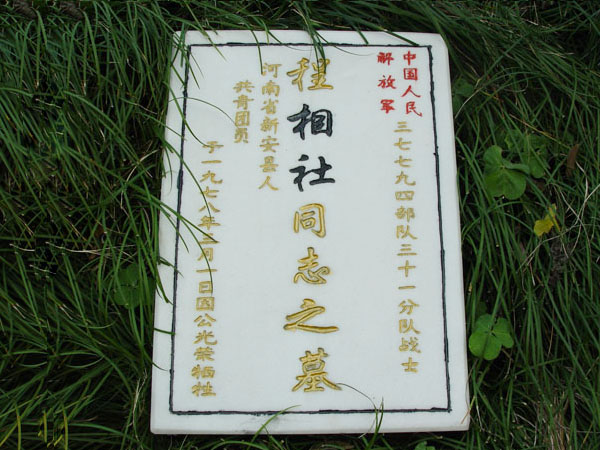 中国人民
解放军
三七七九四部队三十一分队战士
程相社同志之墓
河南省新安县人
共青团员
于一九七八年二月一日因公光荣牺牲